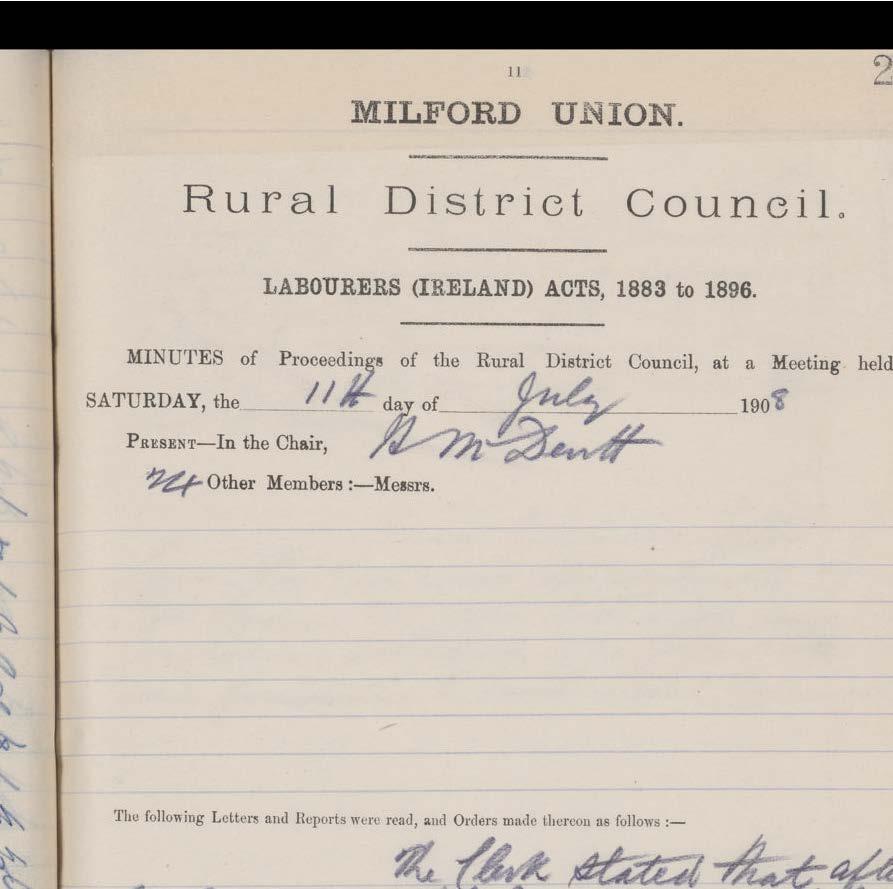 11
2
MILFORD UNION.
Rural District Council.
LABOURERS (IRELAND) ACTS, 1883 to 1896.
MINUTES of Proceedings of the Rural District Council, at a Meeting held
SATURDAY, the 11th day of July 1908
PRESENT—In the Chair, H McDevitt
24 Other Members :—Messrs.
The following Letters and Reports were read, and Orders made thereon as follows :—
The Clerk stated that aft